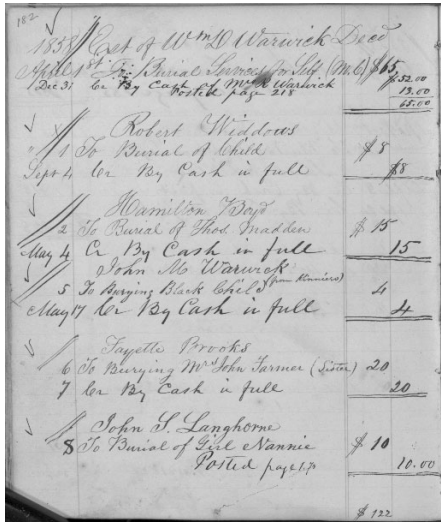 182
1858 Est of Wm D Warwick Decd
April 1st To Burial Services for Self (M.C) $65
Dec 31 Cr By Cash of Mrs Warwick 52.00
Posted page 218 13.00
65.00
Robert Widdows
1 To Burial of Child $8
Sept 4 Cr By Cash in full $8
Hamilton Boyd
2 To Burial of Thos. Madden $15
May 4 Cr By Cash in full 15
John M Warwick
5 To Burying Black Child (from Kinniers) 4
May 17 Cr By Cash in full 4
Fayette Brooks
6 To Burying Mrs John Farmer (Sister) 20
7 Cr By Cash in full 20
John S. Langhorne
8 To Burial of Girl Nannie $10
Posted page 170 10.00
$122